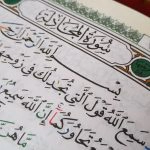 سُورَةُ الْمُجَادِلَةِ
بِسْمِ اللَّهِ الرَّحْمَٰنِ
سَمِعَ اللَّهُ قَوْلَ الَّتِي تُجَٰدِلُكَ فِي زَوْجِهَا
تَحَاوُرَكُمَا إِنَّ اللَّهَ سَمِيعٌ
مَا هُنَّ